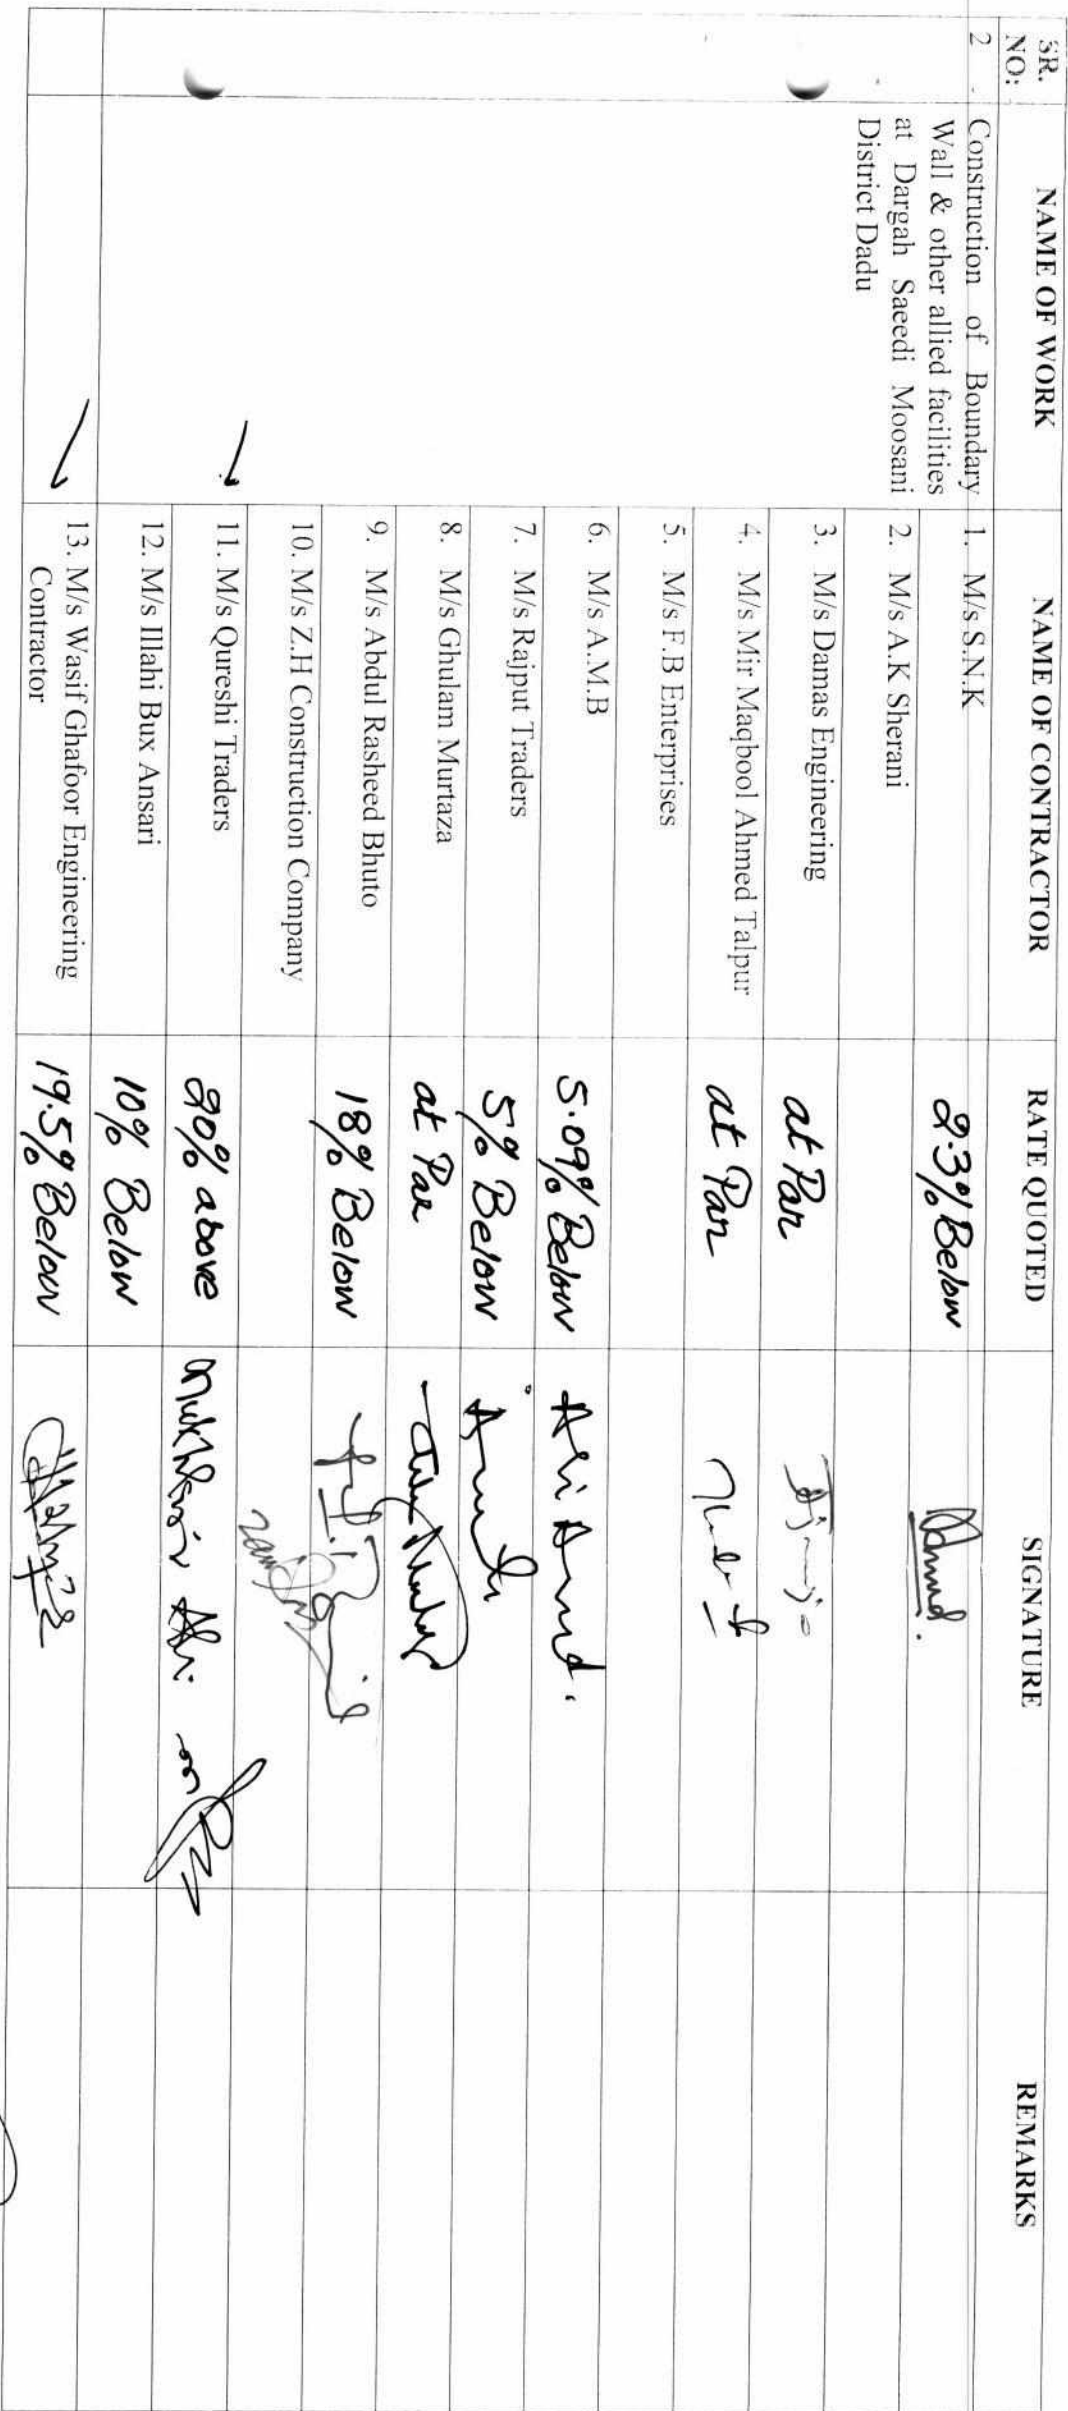 SR. NO: NAME OF WORK NAME OF CONTRACTOR RATE QUOTED SIGNATURE REMARKS
2 Construction of Boundary
Wall & other allied facilities
at Dargah Saeedi Moosani
District Dadu
1. M/s S.N.K 2.3% Below
2. M/s A.K Sherani
3. M/s Damas Engineering at Par
4. M/s Mir Maqbool Ahmed Talpur at Par
5. M/s F.B Enterprises
6. M/s A.M.B 5.09% Below
7. M/s Rajput Traders 5% Below
8. M/s Ghulam Murtaza at Par
9. M/s Abdul Rasheed Bhuto 18% Below
10. M/s Z.H Construction Company
11. M/s Qureshi Traders 20% above
12. M/s Illahi Bux Ansari 10% Below
13. M/s Wasif Ghafoor Engineering 19.5% Below
Contractor